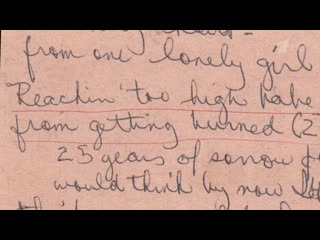 from one lonely girl
Reachin' too high babe
from getting burned (2
25 years of sorrow
would think by now